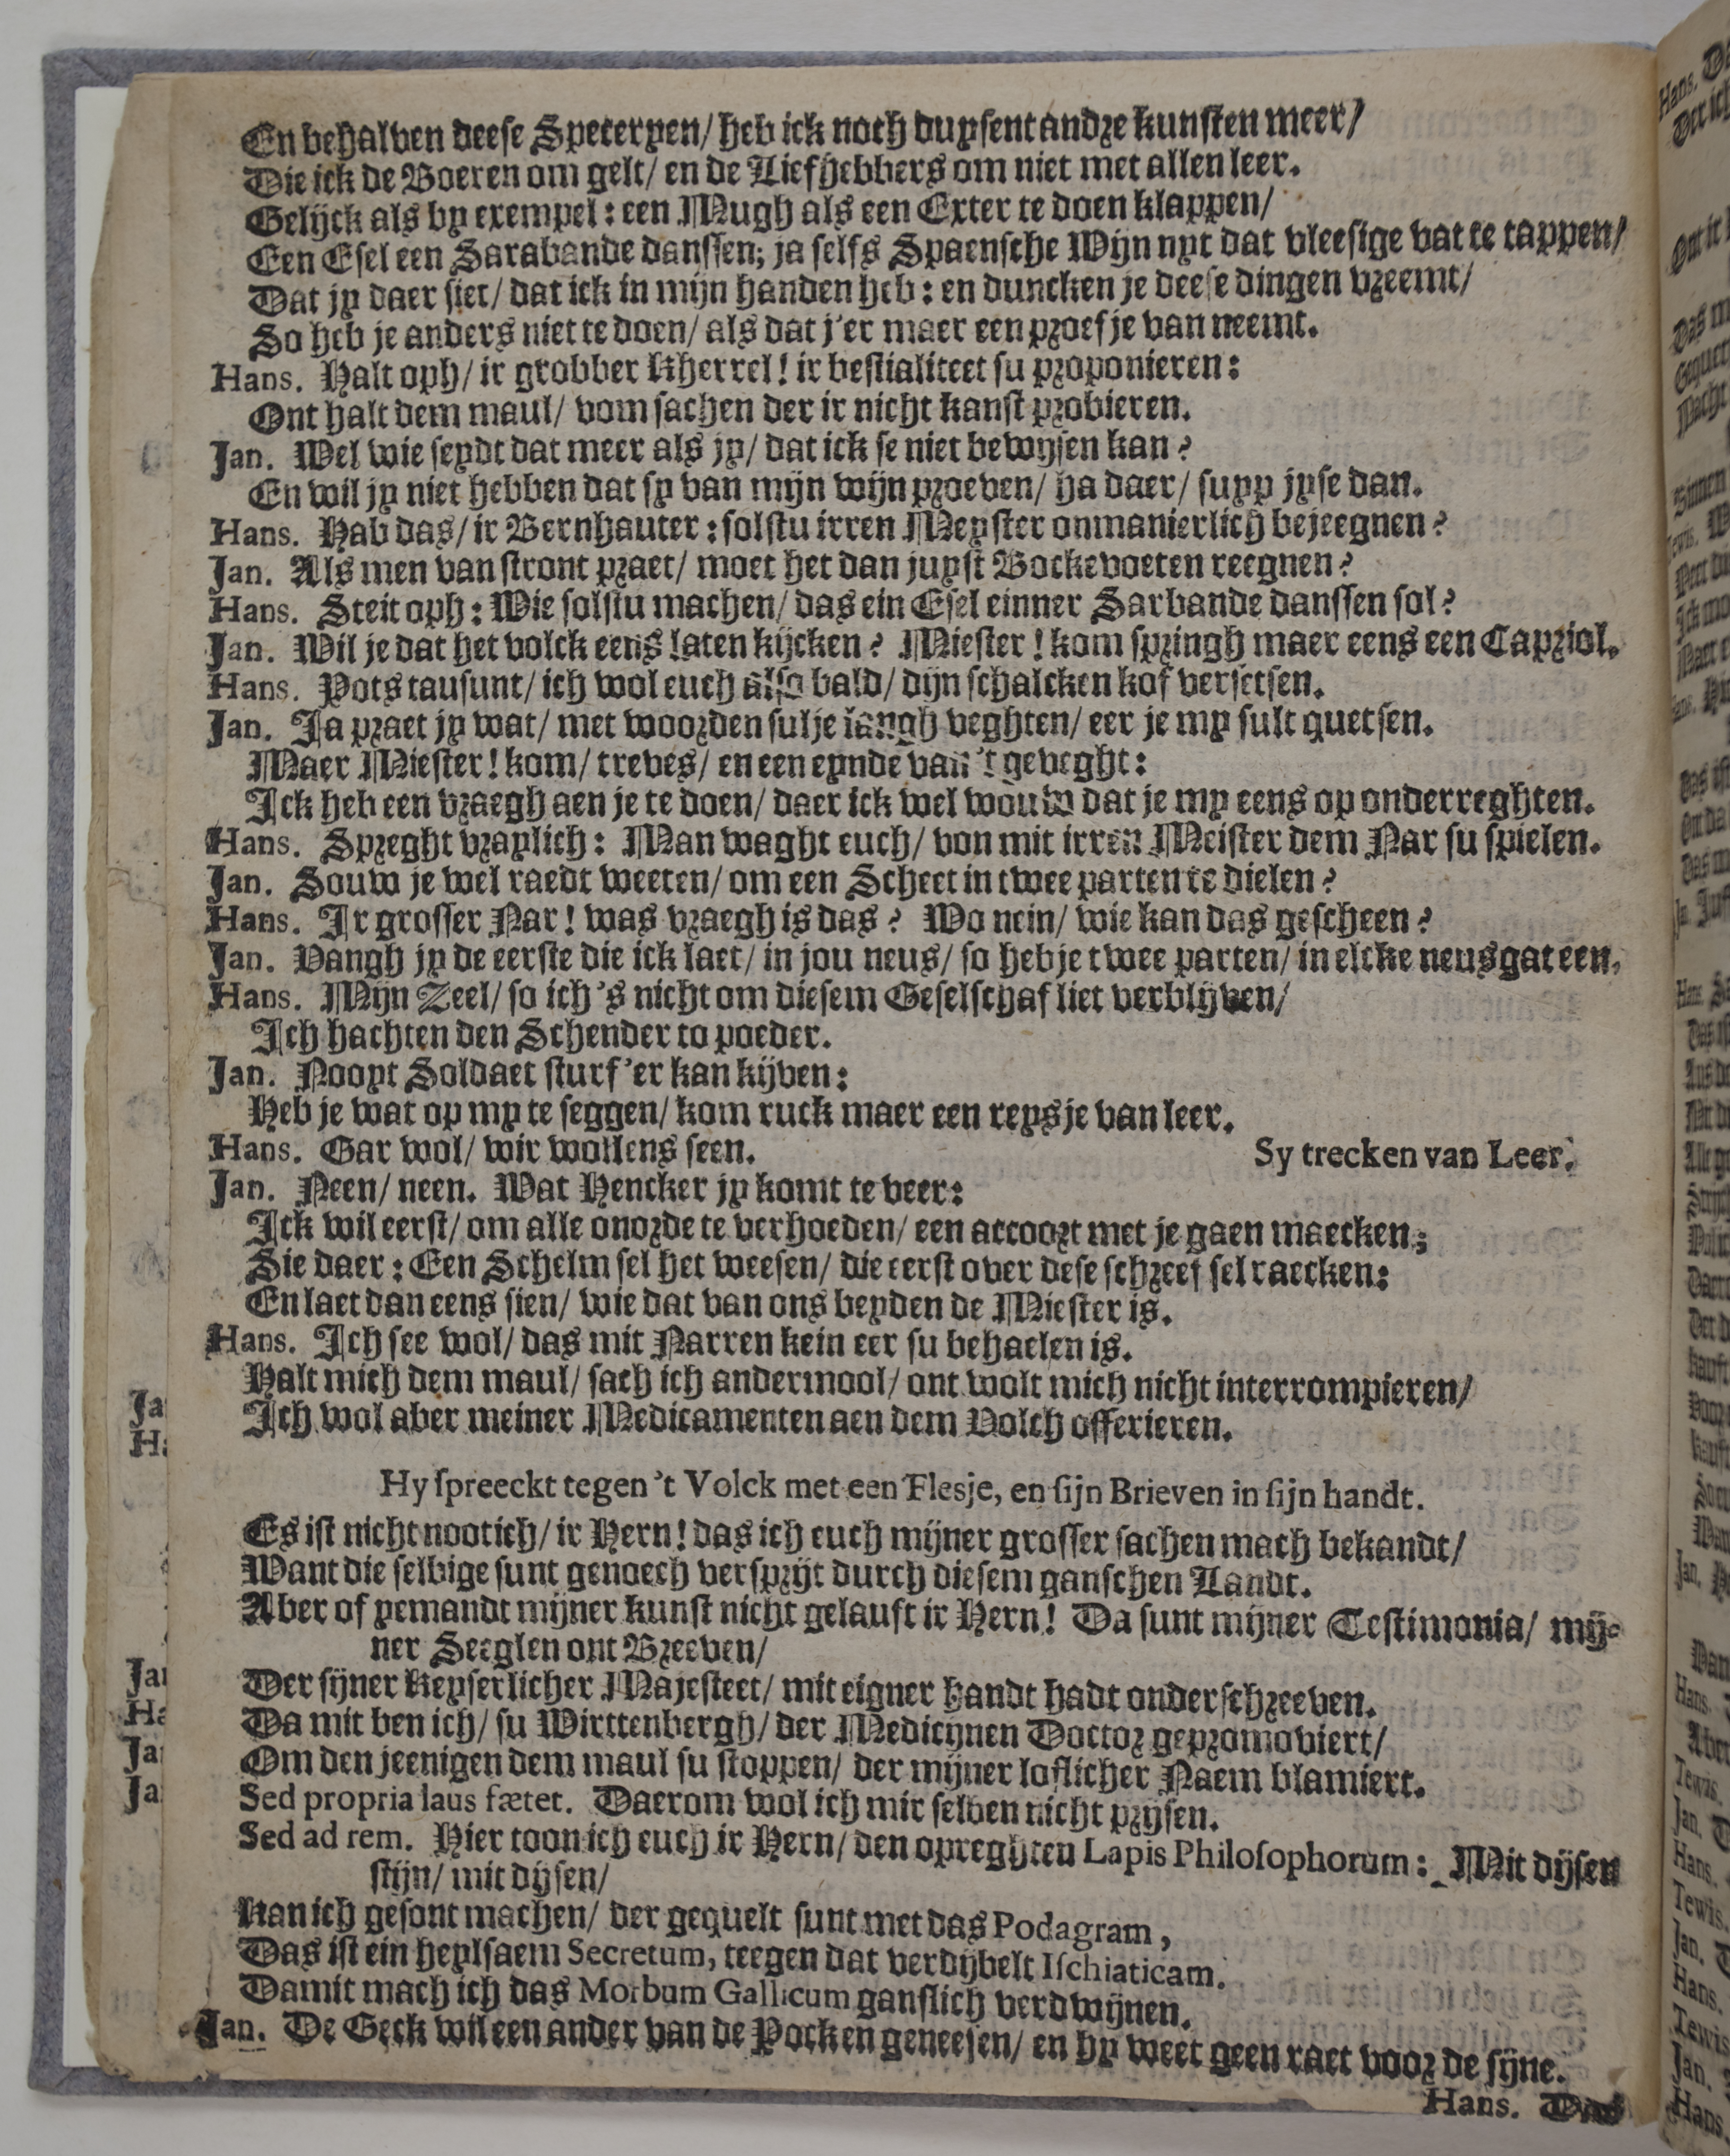 En behalven deese Speteryen/ heb ick noch duysent andre kunsten meer/
Die ick de Boeren om gelt/ en de Liefhebbers om niet met allen leer.
Gelijck als by exempel: een Mugh als een Exter te doen klappen/
Een Esel een Sarabande danssen; ja selfs Spaensche Wijn uyt dat vleesige vat te tappen/
Dat jy daer siet/ dat ick in mijn handen heb: en duncken je deese dingen vreemt/
So heb je anders niet te doen/ als dat j'er maer een proefje van neemt.
Hans. Halt oph/ ir grobber Kherrel! ir bestialiteet su proponieren:
Ont halt dem maul/ vom sachen der ir nicht kanst probieren.
Jan. Wel wie seydt dat meer als jy/ dat ick se niet bewysen kan?
En wil jy niet hebben dat sy van mijn wijn proeven/ ha daer/ supp jyse dan.
Hans. Hab das/ ir Bernhauter: solstu irren Meyster onmanierlich bejeegnen?
Jan. Als men van stront praet/ moet het dan juyst Bockevoeten reegnen?
Hans. Steit oph: Wie solstu machen/ das ein Esel einner Sarbande danssen sol?
Jan. Wil je dat het volck eens laten kijcken? Miester! kom springh maer eens een Capriol.
Hans. Pots tausunt/ ich wol euch also bald/ dijn schalcken kof versetsen.
Jan. Ja praet jy wat/ met woorden sulje langh veghten/ eer je my sult quetsen.
Maer Miester! kom/ treves/ en een eynde van 't geveght:
Ick heb een vraegh aen je te doen/ daer ick wel wouw dat je my eens op onderreghten.
Hans. Spreght vraylich: Man waght euch/ von mit irren Meister dem Nar su spielen.
Jan. Souw je wel raedt weeten/ om een Scheet in twee parten te dielen?
Hans. Ir grosser Nar! was vraegh is das? Wo nein/ wie kan das gescheen?
Jan. Vangh jy de eerste die ick laet/ in jou neus/ so hebje twee parten/ in elcke neusgat een.
Hans. Mijn Zeel/ so ich 's nicht om diesem Geselschaf liet verblijven/
Ich hachten den Schender to poeder.
Jan. Nooyt Soldaet sturf 'er kan kijven:
Heb je wat op my te seggen/ kom ruck maer een reysje van leer.
Hans. Gar wol/ wir wollens seen. Sy trecken van Leer.
Jan. Neen/ neen. Wat Hencker jy komt te veer:
Ick wil eerst/ om alle onorde te verhoeden/ een accoort met je gaen maecken;
Sie daer: Een Schelm sel het weesen/ die eerst over dese schreef sel raecken:
En laet dan eens sien/ wie dat van ons beyden de Miester is.
Hans. Ich see wol/ das mit Narren kein eer su behaelen is.
Halt mich dem maul/ sach ich andermool/ ont wolt mich nicht interrompieren/
Ich wol aber meiner Medicamenten aen dem Volch offerieren.
Hy spreeckt tegen 't Volck met een Flesje, en sijn Brieven in sijn handt.
Es ist nicht nootich/ ir Hern! das ich euch mijner grosser sachen mach bekandt/
Want die selbige sunt genoech verspryt durch diesem ganschen Landt.
Aber of yemandt mijner kunst nicht gelauft ir Hern! Da sunt mijner Testimonia/ mij-
ner Seeglen ont Breeven/
Der sijner Keyserlicher Majesteet/ mit eigner handt hadt onderschreeven.
Da mit ben ich/ su Wirttenbergh/ der Medicynen Doctor gepromoviert/
Om den jeenigen dem maul su stoppen/ der mijner loflicher Naem blamiert.
Sed propria laus fœtet. Daerom wol ich mir selven nicht prysen.
Sed ad rem. Hier toon ich euch ir Hern/ den opreghten Lapis Philosophorum: Mit dijsen
stijn/ mit dijsen/
Kan ich gesont machen/ der gequelt sunt met das Podagram,
Das ist ein heylsaem Secretum, teegen dat verdijvelt Ischiaticam.
Damit mach ich das Morbum Gallicum ganslich verdwijnen.
Jan. De Geck wil een ander van de Pocken geneesen/ en hy weet geen raet voor de sijne.
Hans.